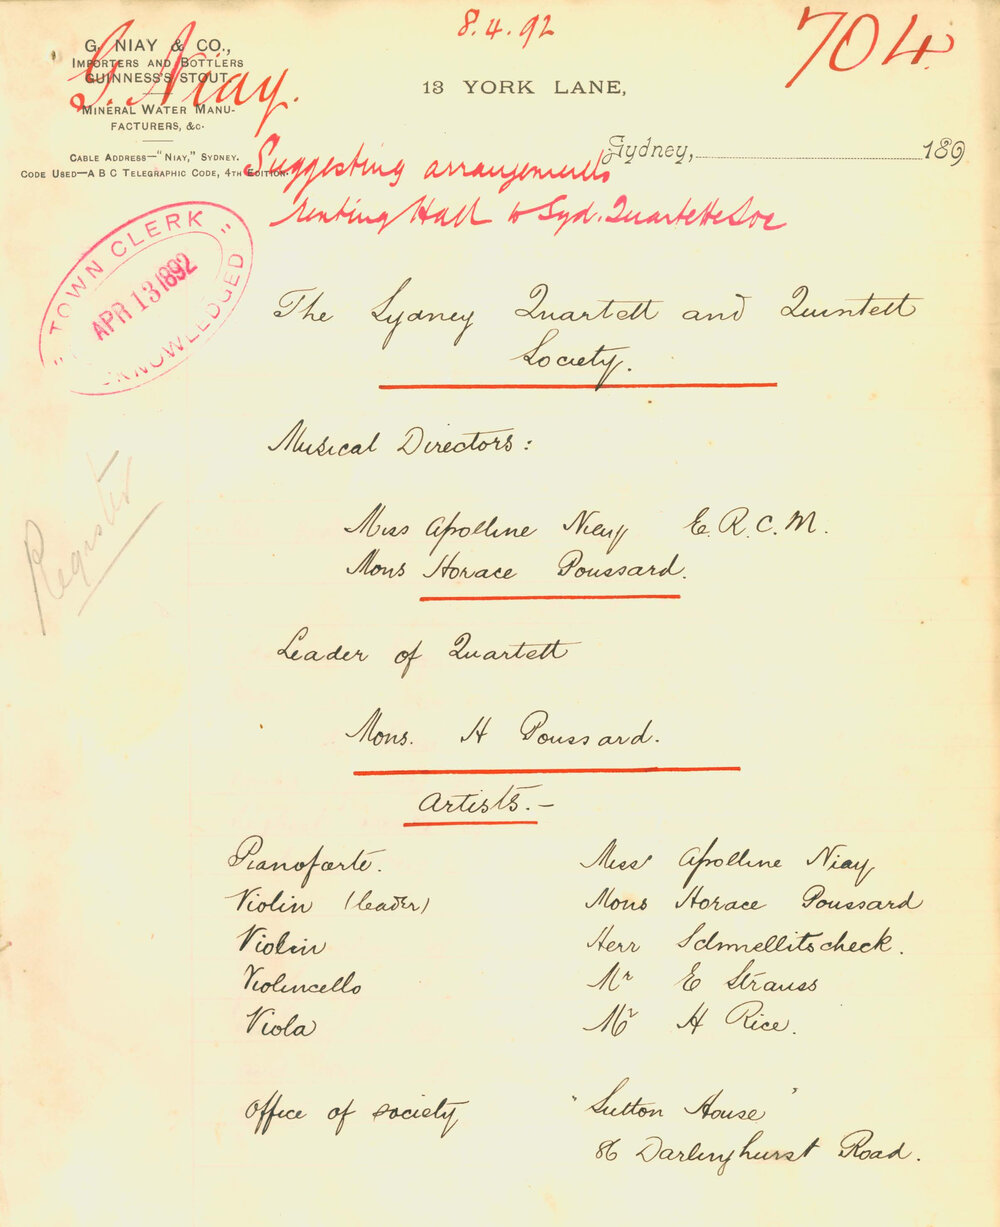 8.4.92
704
G. NIAY & CO.,
IMPORTERS AND BOTTLERS
GUINNESS'S STOUT.
MINERAL WATER MANU-
FACTURERS, &c.
CABLE ADDRESS—"NIAY," SYDNEY.
CODE USED—A B C TELEGRAPHIC CODE, 4TH EDITION.
G. Niay.
13 YORK LANE,
Sydney, 189
Suggesting arrangements
renting Hall to Syd. Quartette Soc
"TOWN CLERK"
APR 13 1892
ACKNOWLEDGED
Register
The Sydney Quartett and Quintett
Society.
Musical Directors:
Miss Apolline Niay E.R.C.M.
Mons Horace Poussard.
Leader of Quartett
Mons. H Poussard.
Artists.—
Pianoforte. Miss Apolline Niay
Violin (leader) Mons Horace Poussard
Violin Herr Schmellitscheck.
Violincello Mr E Strauss
Viola Mr H Rice.
Office of society "Sutton House"
86 Darlinghurst Road.